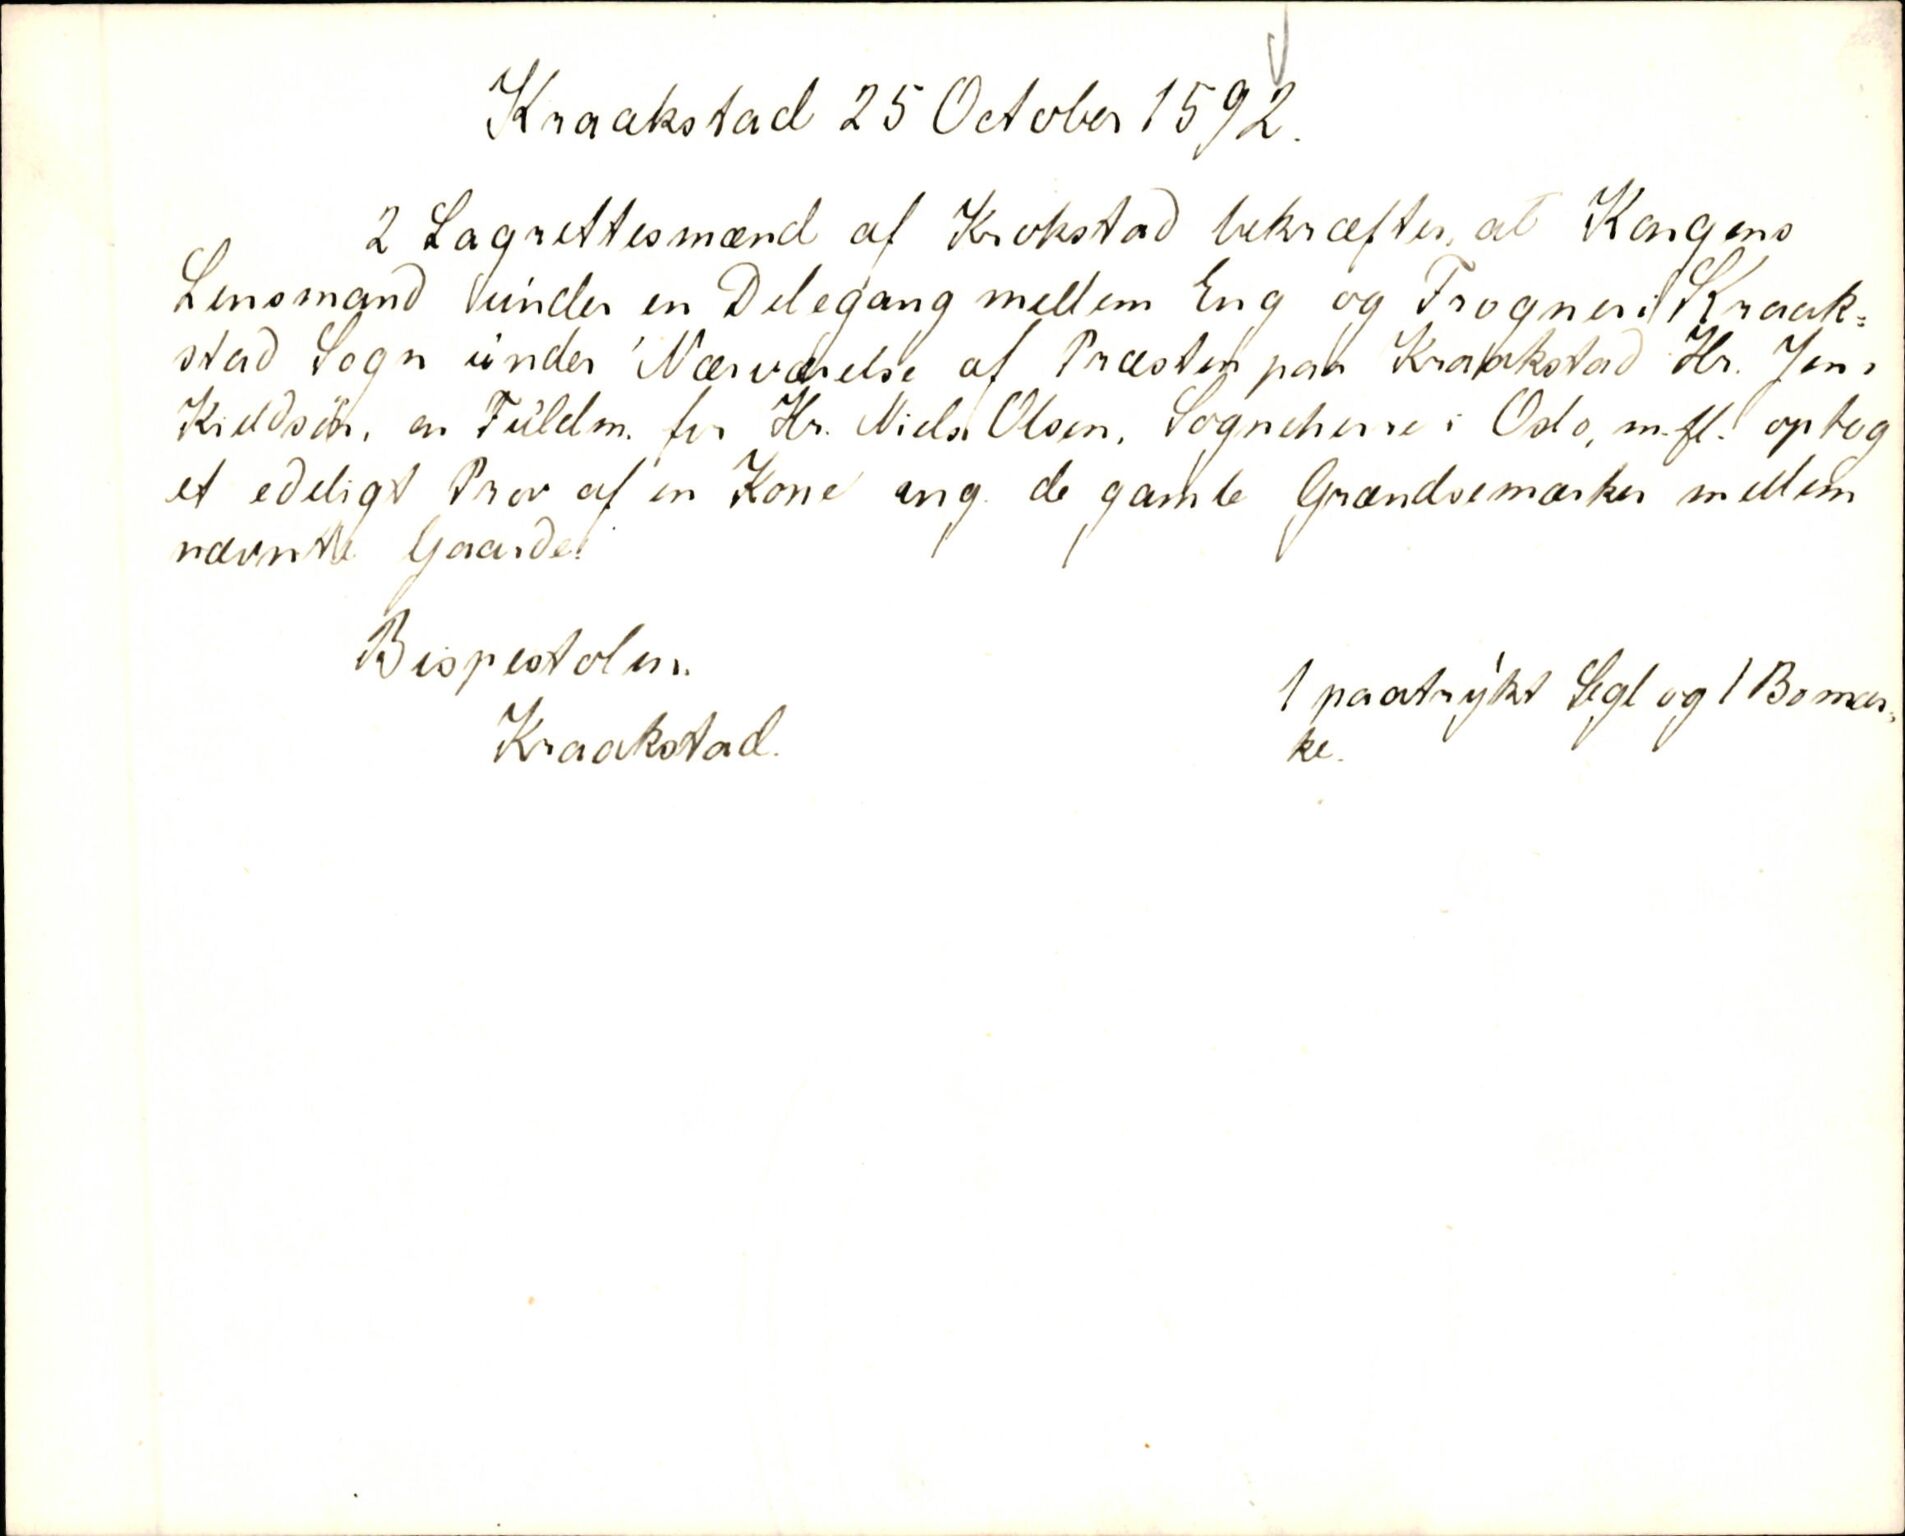 Kraakstad 25 October 1592.
2 Lagrettesmænd af Krokstad bekræfter, at Kongens
Lensmand under en Delegang mellem Eng og Frogner i Kraak=
stad Sogn under Nærværelse af Præsten paa Kraakstad Hr. Jens
Kieldsön, en Fuldm. for Hr. Niels Olsen, Sogneherre i Oslo, m. fl. optog
et edeligt Prov af en Kone ang. de gamle Grændsemærker mellem
nævnte Gaarde.
Bispestolen.
Kraakstad.
1 paatrykt Segl og 1 Bomær=
ke.